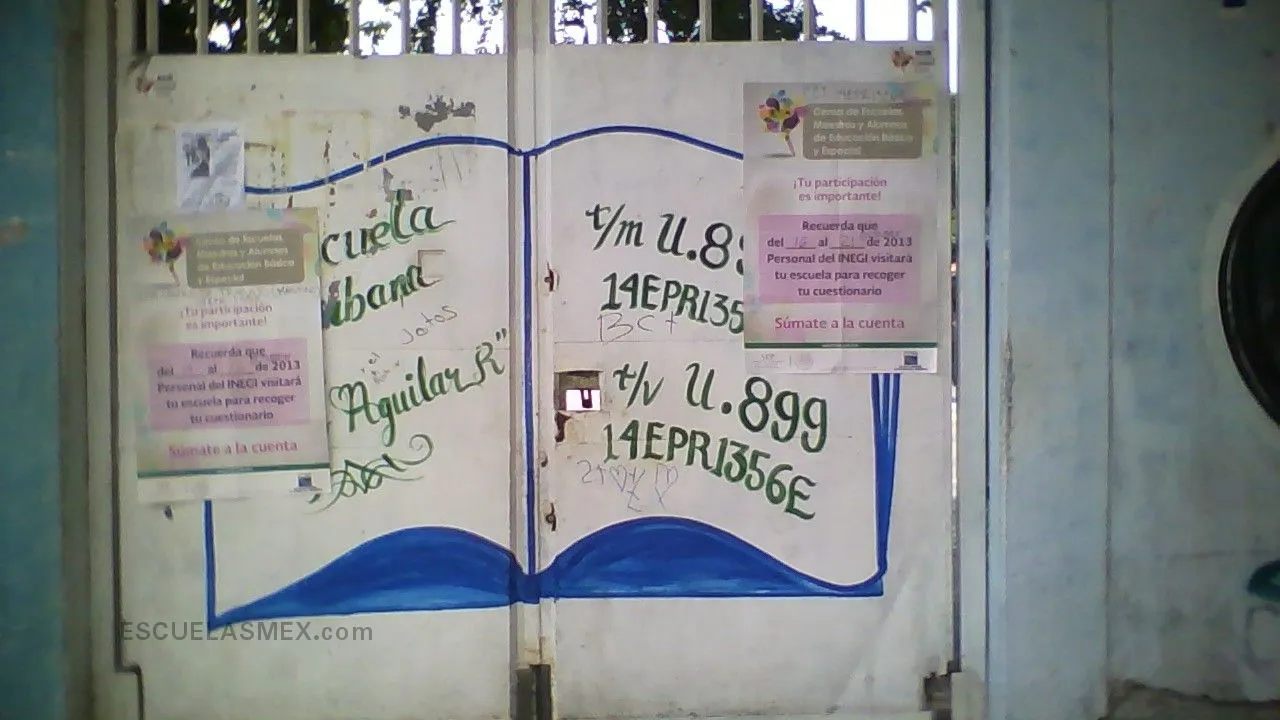 cuela
ibana
jotos
Aguilar R"
t/m U.89
14EPR135
BCT
t/v U.899
14EPR1356E
Censo de Escuelas
Maestros y Alumnos
de Educación Básica
y Especial
¡Tu participación
es importante!
Recuerda que
del al de 2013
Personal del INEGI visitará
tu escuela para recoger
tu cuestionario
Súmate a la cuenta
Censo de Escuelas
Maestros y Alumnos
de Educación Básica
y Especial
¡Tu participación
es importante!
Recuerda que
del al de 2013
Personal del INEGI visitará
tu escuela para recoger
tu cuestionario
Súmate a la cuenta
SEP
ESCUELASMEX.com